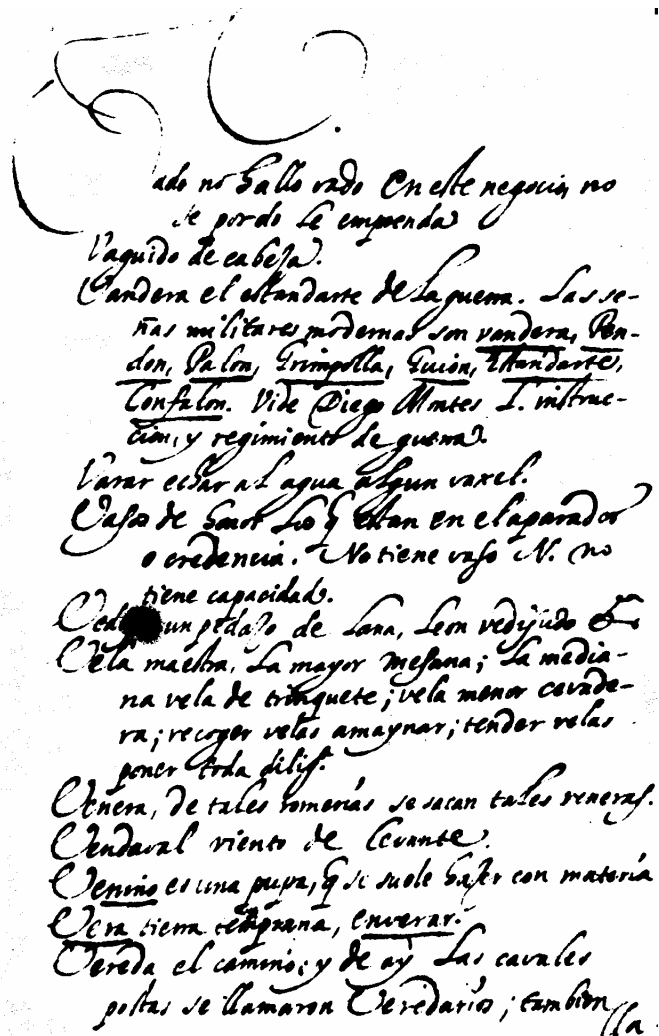 Vado no hallo vado en este negocio, no
se por do le emprenda
Vaguido de cabeza.
Vandera el estandarte de la guerra. Las se-
ñas militares modernas son vandera, Pen-
don, Palon, Grimpolla, Guion, Estandarte,
Confalon. Vide Diego Montes L. instruc-
cion, y regimiento de guerra.
Varar echar al agua algun vaxel.
Vasos de honor los q estan en el aparador
o credencia. No tiene vaso N. no
tiene capacidad.
un pedazo de lana, Leon vedijudo &
Vela maestra, la mayor mesana; la media-
na vela de trinquete; vela menor cevade-
ra; recoger velas amaynar; tender velas
poner toda dilig.ª
Venera, de tales romerías se sacan tales veneras.
Vendaval viento de Levante.
Venino es una pupa, q se suele hazer con matería
Vera tierra temprana, enverar.
Vereda el camino; y de ay las cavales
postas se llamaron Veredarios; tambien
lla